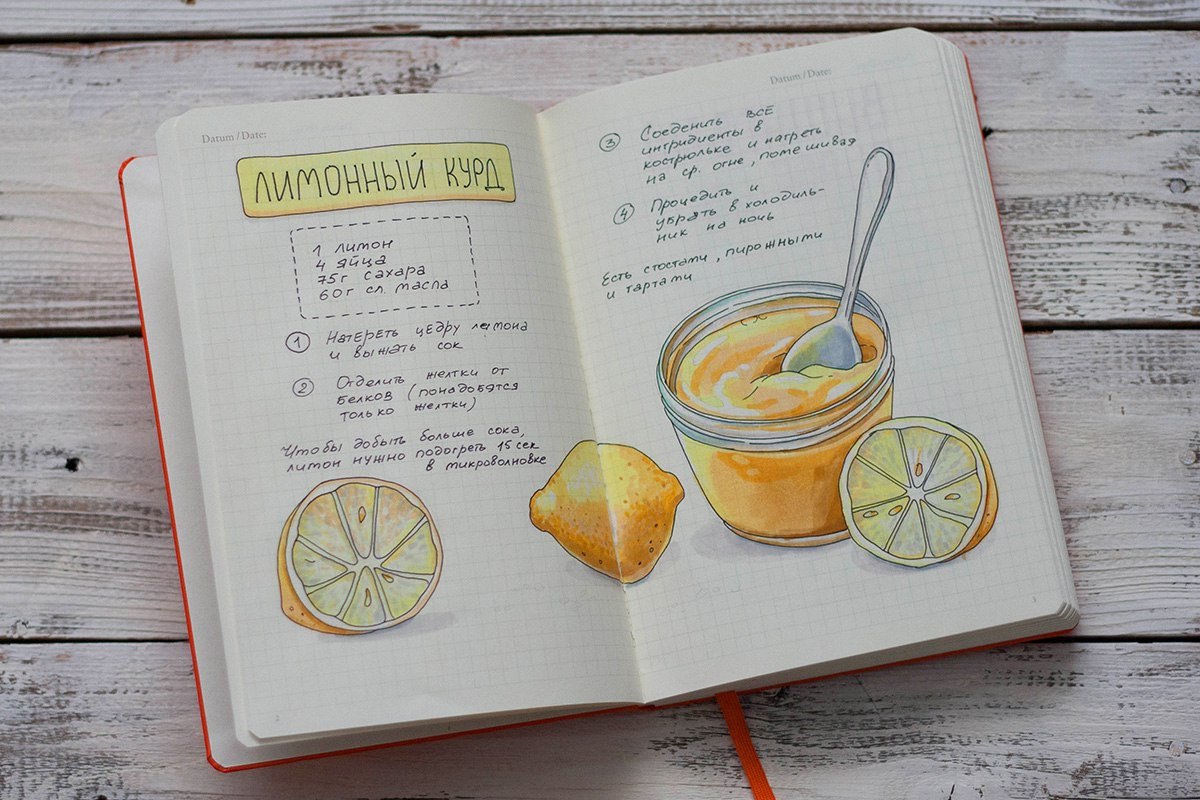 Datum / Date:
ЛИМОННЫЙ КУРД
1 лимон
4 яйца
75г сахара
60г сл. масла
1 Натереть цедру лемона
и выжать сок
2 Отделить желтки от
белков (понадобятся
только желтки)
Чтобы добыть больше сока,
лимон нужно подогреть 15 сек
в микроволновке
Datum / Date:
3 Соеденить все
интридиенты в
кострюльке и нагреть
на ср. огне, помешивая
4 Процедить и
убрать в холодиль-
ник на ночь
Есть стостати, пирожными
и тартами